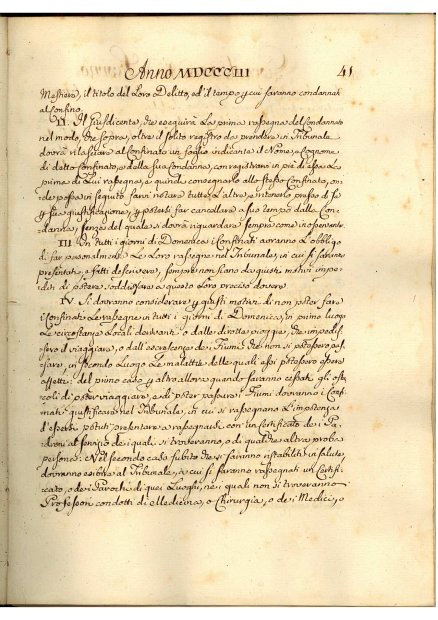 Anno MDCCCIII 41
Mestiere, il titolo del Loro Delitto, ed il tempo p cui saranno condannati
al confino.
II. Il Giusdicente, che eseguirà La prima rassegna del Condannato
nel modo, che sopra, oltre il solito registro da prendersi in Tribunale
dovrà rilasciare al Confinato un foglio indicante il Nome, e Cognome
di detto Confinato, e della sua Condanna, con registrare in piè di esso La
prima di Lui rassegna, e quindi consegnarlo allo stesso Confinato, on-
de possa in seguito farvi notare tutte L'altre, e tenerlo presso di se
p sua giustificazione, e potersi far cancellare a suo tempo dalla Con-
danna, senza del quale si dovrà riguardare sempre come inosservante.
III. In tutti i giorni di Domenica i Confinati avranno L'obbligo
di far personalmente Le Loro rassegne nel Tribunale, in cui si saranno
presentati, e fatti descrivere, sempre non siano da giusti motivi impe-
diti di potere soddisfare a questo Loro preciso dovere.
IV. Si dovranno considerare p giusti motivi di non poter fare
i Confinati Le rassegne in tutti i giorni di Domenica, in primo luogo
Le circostanze Locali derivanti o dalle dirotte piogge, che impedis-
sero il viaggiare, o dall'escrescenze dei Fiumi che non si potessero pas-
sare, in secondo Luogo Le malattie, delle quali essi potessero essere
affetti; del primo caso p altro allora quando saranno cessati gli osta-
coli di poter viaggiare, e di poter passare i Fiumi dovranno i Confi-
nati giustificare nel Tribunale, in cui si rassegnano L'impotenza
d'essersi potuti presentare a rassegnarsi con un Certificato dei Pa-
droni al servizio dei quali si troveranno, o di qualche altra proba
persona: Nel secondo caso subito che si saranno ristabiliti in salute,
dovranno esibire al Tribunale, a cui si saranno rassegnati un Certifi-
cato, o dei Parochi di quei Luoghi, nei quali non si troveranno
Professori condotti di Medicina, o Chirurgia, o dei Medici, o